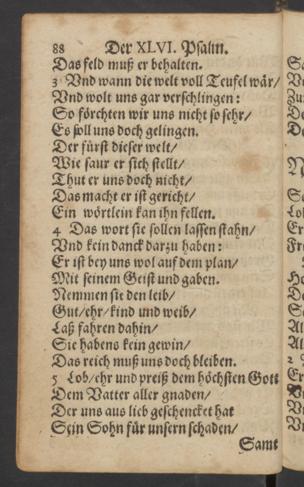 88 Der XLVI. Psalm.
Das feld muß er behalten.
3 Vnd wann die welt voll Teufel wär/
Vnd wolt uns gar verschlingen:
So förchten wir uns nicht so sehr/
Es soll uns doch gelingen.
Der fürst dieser welt/
Wie saur er sich stellt/
Thut er uns doch nicht/
Das macht er ist gericht/
Ein wörtlein kan ihn fellen.
4 Das wort sie sollen lassen stahn/
Vnd kein danck darzu haben:
Er ist bey uns wol auf dem plan/
Mit seinem Geist und gaben.
Nemmen sie den leib/
Gut/ehr/kind und weib/
Laß fahren dahin/
Sie habens kein gewin/
Das reich muß uns doch bleiben.
5 Lob/ehr und preiß dem höchsten Gott
Dem Vatter aller gnaden/
Der uns aus lieb geschencket hat
Sein Sohn für unsern schaden/
Samt